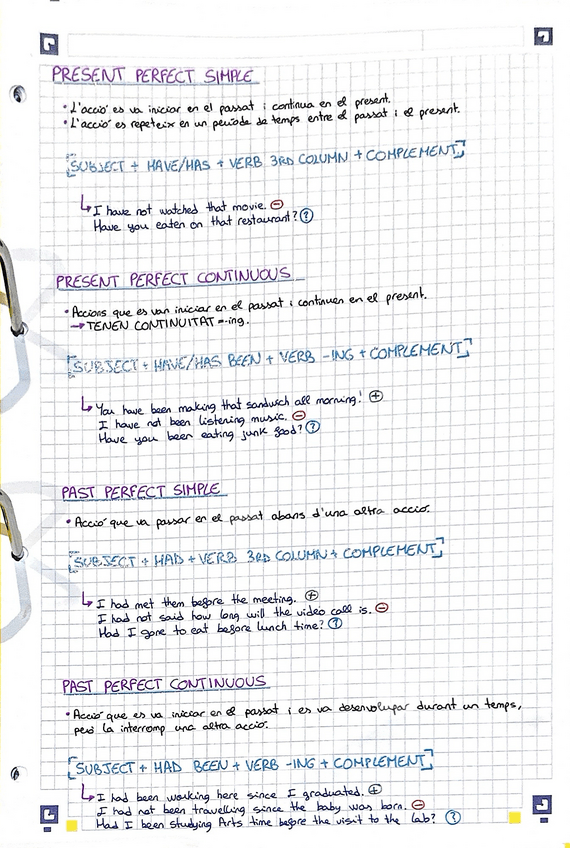 PRESENT PERFECT SIMPLE
• L'acció es va iniciar en el passat i continua en el present.
• L'acció es repeteix en un període de temps entre el passat i el present.
[SUBJECT + HAVE/HAS + VERB 3RD COLUMN + COMPLEMENT]
↳ I have not watched that movie. ⊖
Have you eaten on that restaurant? ?
PRESENT PERFECT CONTINUOUS
• Accions que es van iniciar en el passat i continuen en el present.
→ TENEN CONTINUITAT = -ing.
[SUBJECT + HAVE/HAS BEEN + VERB -ING + COMPLEMENT]
↳ You have been making that sandwich all morning! ⊕
I have not been listening music. ⊖
Have you been eating junk good? ?
PAST PERFECT SIMPLE
• Acció que va passar en el passat abans d'una altra acció.
[SUBJECT + HAD + VERB 3RD COLUMN + COMPLEMENT]
↳ I had met them before the meeting. ⊕
I had not said how long will the video call is. ⊖
Had I gone to eat before lunch time? ?
PAST PERFECT CONTINUOUS
• Acció que es va iniciar en el passat i es va desenvolupar durant un temps,
però la interromp una altra acció.
[SUBJECT + HAD BEEN + VERB -ING + COMPLEMENT]
↳ I had been working here since I graduated. ⊕
I had not been travelling since the baby was born. ⊖
Had I been studying Arts time before the visit to the lab? ?